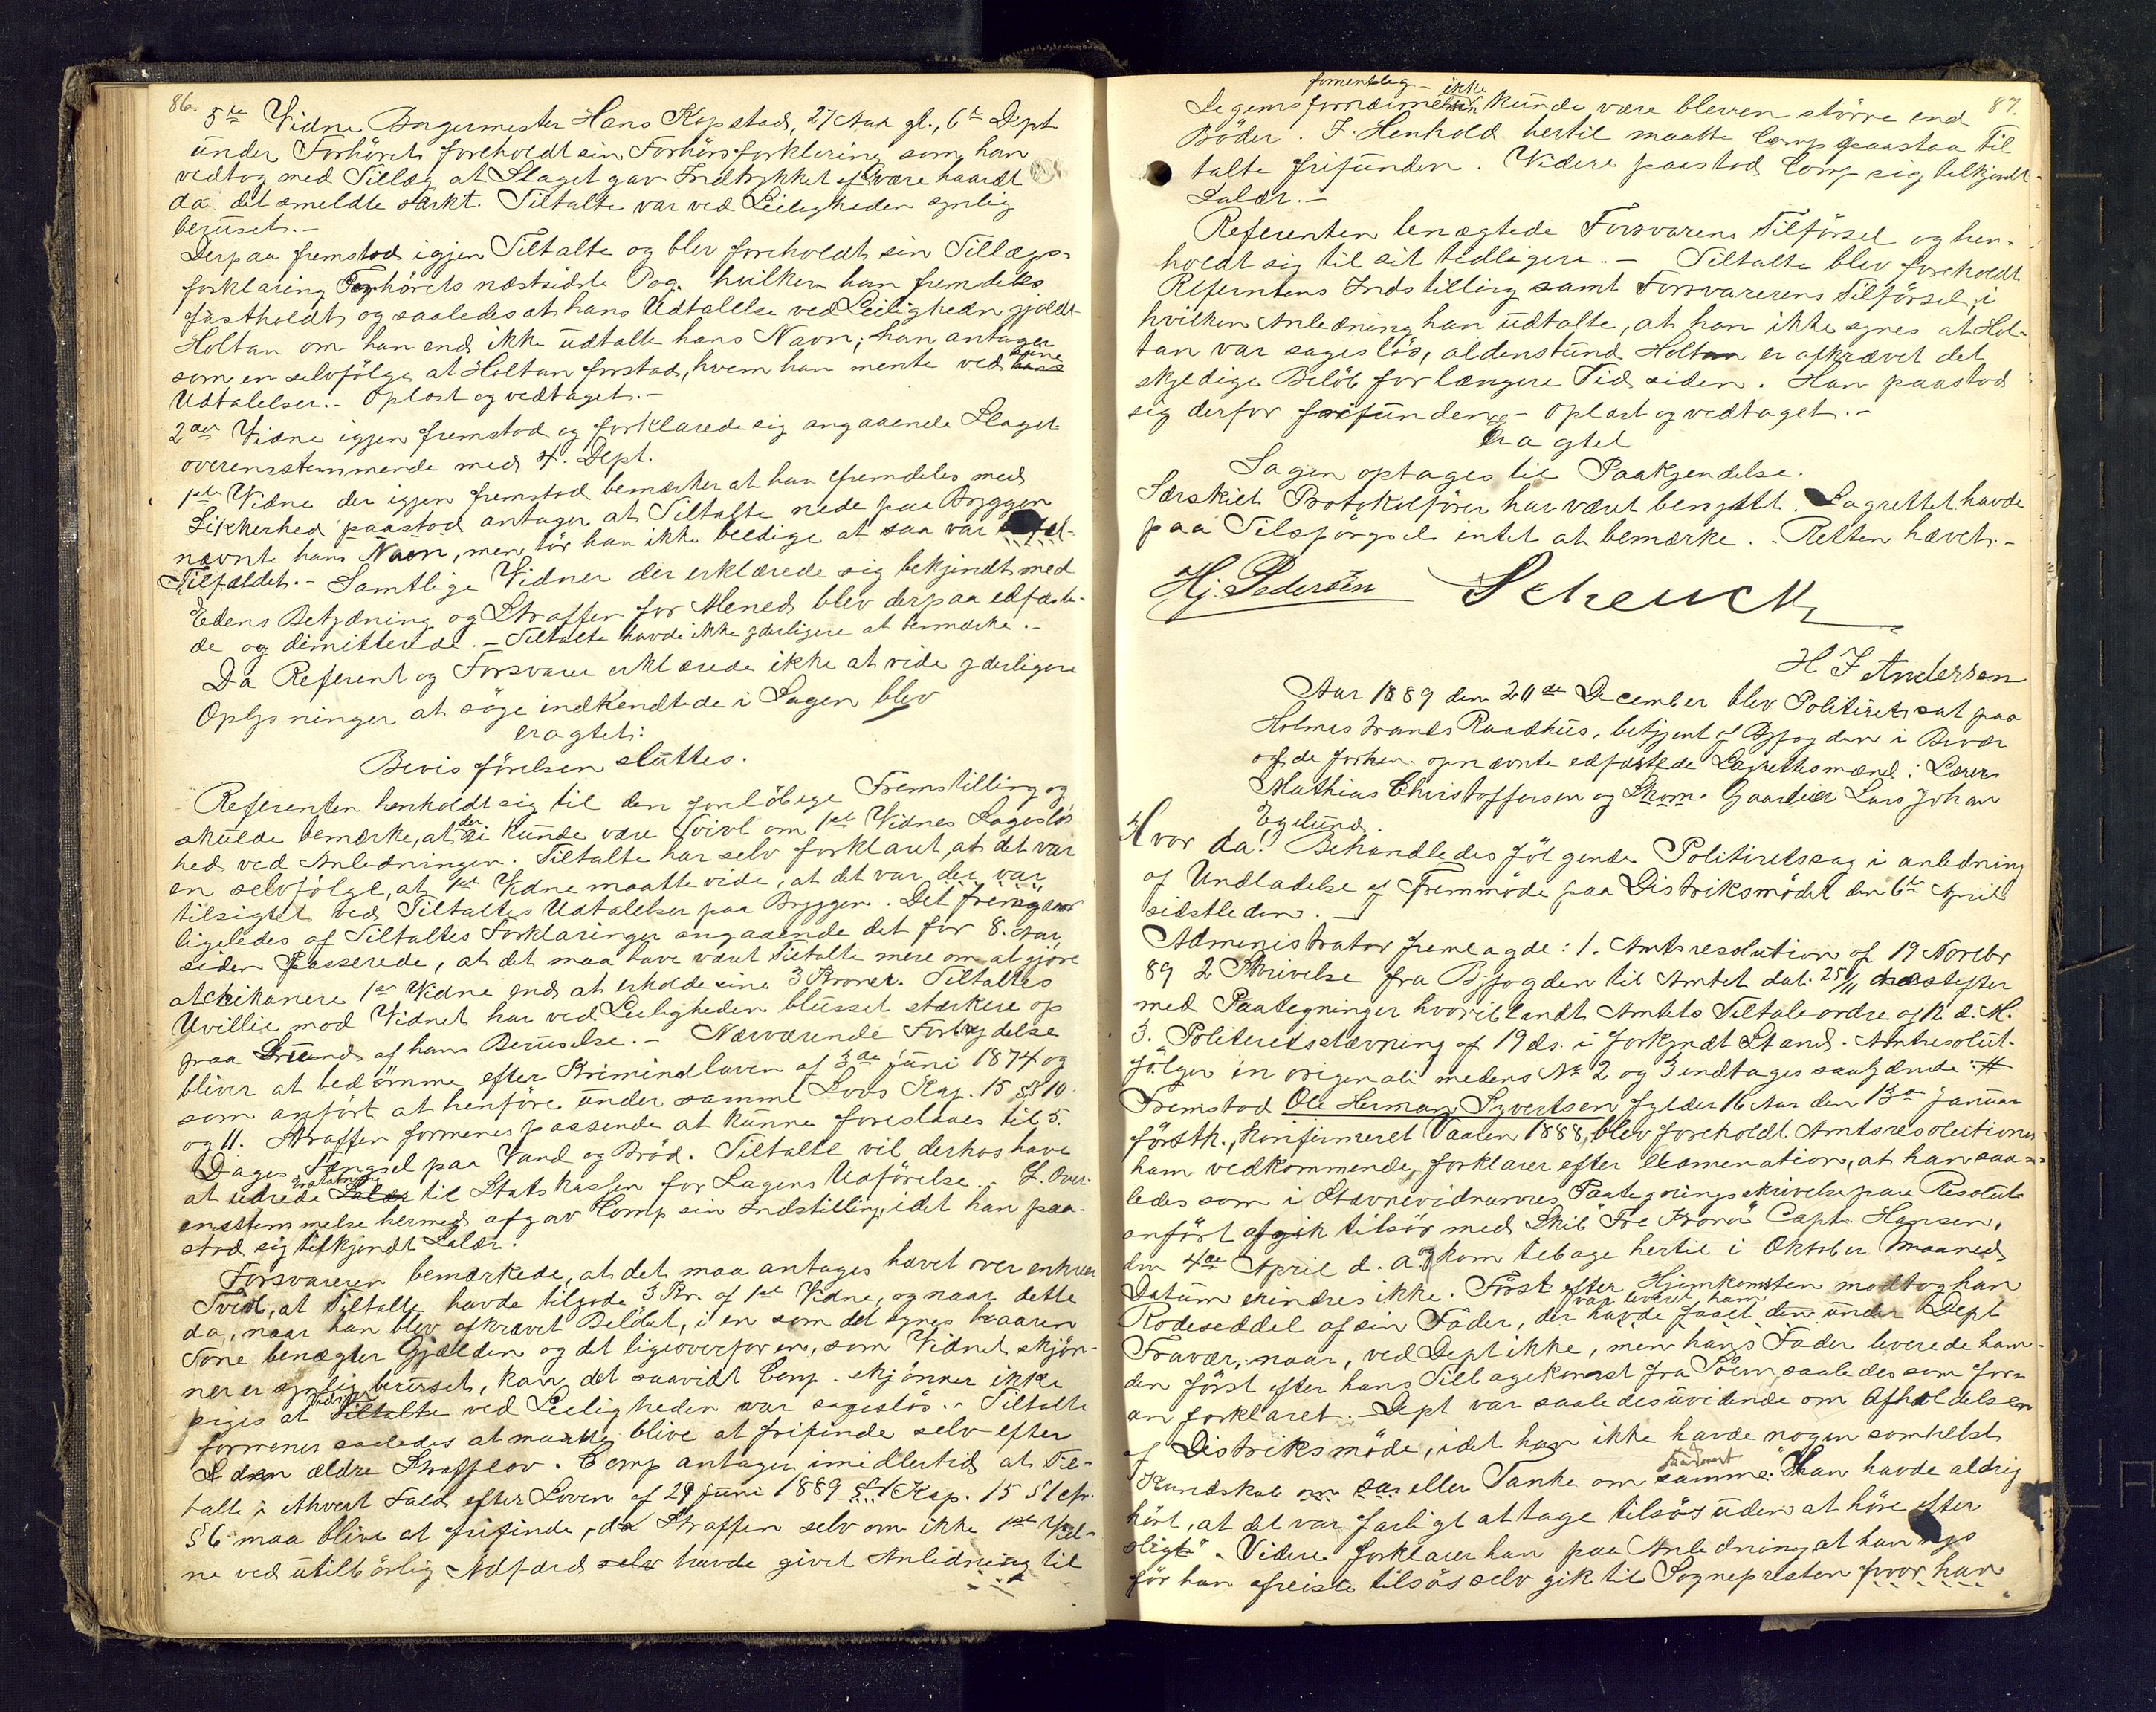 86.
5te Vidne Bagermester Hans Kopstad, 27 Aar gl., 6te Dept
under Forhöret foreholdt sin Forhörsforklaring som han
vedtog med Tillæg at Slaget gav Indtrykket af at være haardt
da det smeldte stærkt. Tiltalte var ved Leiligheden synlig
beruset.-
Derpaa fremstod igjen Tiltalte og blev foreholdt sin Tillægs-
forklaring Forhörets næstsidste Dag. hvilken han fremdeles
fastholdt og saaledes at hans Udtalelse ved Leiligheden gjaldt
Holtan om han end ikke udtalte hans Navn; han antager
som en selvfölge at Holtan forstod, hvem han mente ved sine
Udtalelser.- Oplæst og vedtaget.-
2det Vidne igjen fremstod og forklarede sig angaaende Slaget
overensstemmende med 4. Dept.
1ste Vidne der igjen fremstod bemærker at han fremdeles med
Sikkerhed paastod antager at Tiltalte nede paa Bryggen
nævnte hans Navn, men tör han ikke beedige at saa var
Tilfældet.- Samtlige Vidner der erklærede sig bekjendt med
Edens Betydning og Straffen for Mened blev derpaa edfæste-
de og dimitterede.- Tiltalte havde ikke yderligere at bemærke.-
Da Referent og Forsvarer erklærede ikke at vide yderligere
Oplysninger at söge indhendtede i Sagen blev
eragtet:
Bevisförelsen sluttes.
Referenten henholdt sig til den forelöbige Fremstilling og
skulde bemærke, at der ei kunde være Tvivl om 1ste Vidnes Sageslös
hed ved Anledningen. Tiltalte har selv forklaret, at det var
en selvfölge, at 1ste Vidne maatte vide, at det var der var
tilsigtet ved Tiltaltes Udtalelser paa Bryggen. Det fremgaar
ligeledes af Tiltaltes Forklaringer angaaende det for 8. Aar
siden Passerede, at det maa have været Tiltalte mere om at gjöre
at chikanere 1ste Vidne end at erholde sine 3 Kroner. Tiltaltes
Uvillie mod Vidnet har ved Leiligheden blusset stærkere op
paa Grund af hans Beruselse.- Nærværende Forbrydelse
bliver at bedömme efter Kriminalloven af 3die Juni 1874 og
som anfört at henföre under samme Lovs Kap. 15 §§ 10
og 11. Straffen formenes passende at kunne foreslaaes til 5
Dages Fængsel paa Vand og Bröd. Tiltalte vil derhos have
at udrede Erstatning til Statskassen for Sagens Udförelse.- I. Over-
ensstemmelse hermed afgav Comp sin Indstilling, idet han paa-
stod sig tilkjendt Salær.
Forsvareren bemærkede, at det maa antages hævet over enhver
Tvivl, at Tiltalte havde tilgode 3 Kr. af 1ste Vidne, og naar dette
da, naar han blev afkrævet Belöbet, i en som det synes haaren
Tone benægter Gjælden og det ligeoverfor en, som Vidnet skjön-
ner er synlig beruset, kan det saavidt Comp. skjönner ikke
siges at Vidnet ved Leiligheden var sageslös.- Tiltalte
formenes saaledes at maatte blive at frifinde selv efter
den ældre Straffelov. Comp antager imidlertid at Til-
talte i ethvert Fald efter Loven af 29 Juni 1889 § 1 Kap. 15 § 1 cfr.
§ 6 maa blive at frifinde, da Straffen selv om ikke 1ste Vid-
ne ved utilbörlig Adfærd selv havde givet Anledning til
87.
formentlig - ikke
Legemsfornærmelsen kunde være bleven större end
Böder. I. Henhold hertil maatte Comp paastaa Til
talte frifunden. Videre paastod Comp sig tilkjendt
Salær.-
Referenten benægtede Forsvarens Tilförsel og hen-
holdt sig til sit tidligere.- Tiltalte blev foreholdt
Referntens Indstilling samt Forsvarerens Tilförsel, i
hvilken Anledning han udtalte, at han ikke synes at Hol-
tan var sageslös, aldenstund Holtan er afkrævet det
skyldige Belöb for længere Tid siden. Han paastod
sig derfor frifunden.- Oplæst og vedtaget.-
Eragtet
Sagen optages til Paakjendelse.
Særskilt Protokolförer har været benyttet. Lagrettet havde
paa Tilspörgsel intet at bemærke. Retten hævet.-
Hj. Pedersen Schenck
H J Andersen
Aar 1889 den 20de December blev Politiret sat paa
Holmestrands Raadhus, betjent af Byfogden i Bevær
af de forhen opnævnte edfæstede Lagrettesmænd: Lærer
Mathias Christoffersen og Skom. Gaardeier Lars Johan
Egelund.
Hvor da! Behandledes fölgende Politiretssag i anledning
af Undladelse af Fremmöde paa Distriksmödet den 6te April
sidstleden.
Administrator fremlagde: 1. Amtsresolution af 19 Novebr
89 2 Skrivelse fra Byfogden til Amtet dat. 25/11 næstefter
med Paategninger hvoriblandt Amtets Tiltaleordre af 12 d. M.
3. Politiretsstævning af 19 ds. i forkyndt Stand. Amtresolut.
fölger in originali medens No 2 og 3 indtages saalydende: #
Fremstod Ole Herman Syvertsen fylder 16 Aar den 13de Januar
förstk., konfirmeret Vaaren 1888, blev foreholdt Amtsresolutionen
ham vedkommende, forklarer efter Examination, at han saa-
ledes som i Stævnevidnernes Paategningsskrivelse paa Resolut.
anfört afgik tilsös med Skib "Tre Kroner" Capt. Hansen,
den 4de April d. A. og kom tilbage hertil i Oktober Maaned
Datum erindres ikke. Först efter Hjemkomsten modtog han
Rodeseddel af sin Fader, der havde faaet den under Dept
Fravær; naar, ved Dept ikke, men hans Fader leverede ham
den först efter hans Tilbagekomst fra Söen, saaledes som for-
an forklaret.- Dept var saaledes uvidende om Afholdelsen
af Distriksmöde, idet han ikke havde nogen somhelst
Kundskab eller Tanke om samme. Han havde aldrig
hört, at det var farligt at tage tilsös uden at höre efter
sligt". Videre forklarer han paa Anledning at han
för han afreiste tilsös selv gik til Sognepresten hvor han